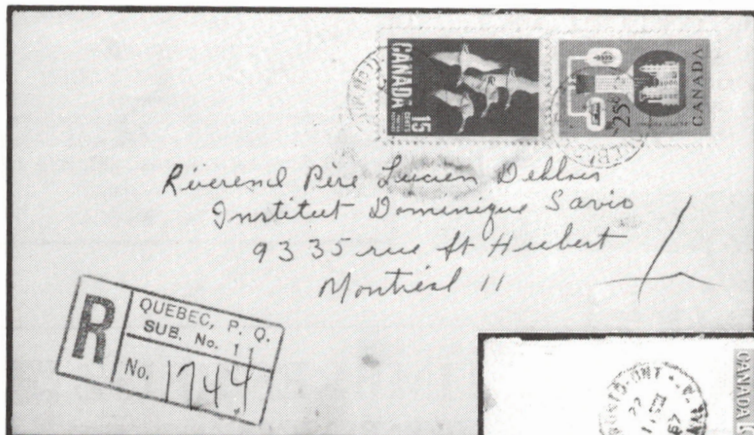 CANADA
15
CENTS
25¢
CANADA
Réverend Père Lucien Deblois
Institut Dominique Savio
9335 rue St Hubert
Montréal 11
R
QUEBEC, P. Q.
SUB. No. 1
No. 1744
ONT
CANADA